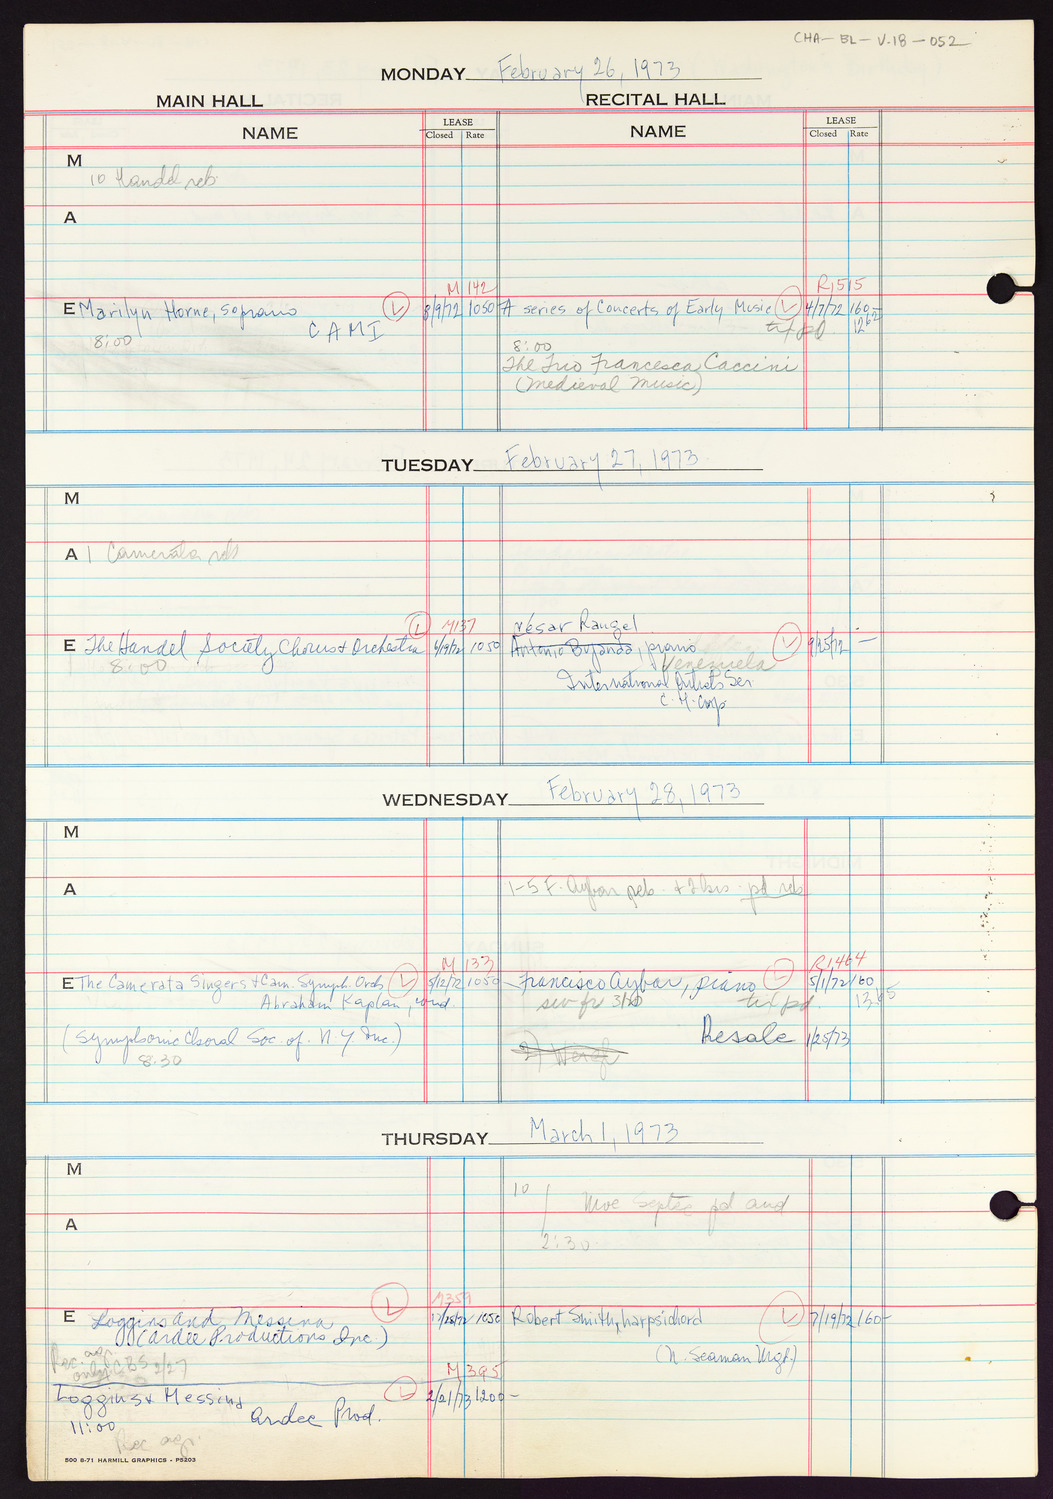 CHA-EL-V.18-052
MONDAY February 26, 1973
MAIN HALL RECITAL HALL
NAME LEASE Closed Rate NAME LEASE Closed Rate
M
10 Handel reh
A
M 142 R1515
E Marilyn Horne, soprano L 8/9/72 1050 A series of Concerts of Early Music L 4/7/72 160-
CAMI tit pd
8:00 8:00
The Trio Francesca Caccini
(Medieval Music)
TUESDAY February 27, 1973
M
A 1 Camerata reh
L M137 César Rangel
E The Handel Society Chorus + Orchestra 6/19/72 1050 Antonio Bujanda, piano L 9/25/72 -
8:00 Venezuela
International Artists Ser.
C.H. Corp
WEDNESDAY February 28, 1973
M
A 1-5 F. Aybar reh + 2 hrs pd reh
M 133 R1464
E The Camerata Singers + Cam. Symph. Orch L 5/12/72 1050 Francisco Aybar, piano L 5/1/72 160
Abraham Kaplan, cond. tit pd. 1365
(Symphonic Choral Soc. of N.Y. Inc.) Resale 1/25/73
8:30
THURSDAY March 1, 1973
M
10
A
2:30
L M359
E Loggins and Messina 1050 Robert Smith, harpsichord L 7/19/72 160-
(Ardee Productions, Inc.) (N. Seaman Mgt.)
Rec. agr. only CBS 2/27
M 395
Loggins + Messina L 2/21/73 1200-
11:00 Ardee Prod.
Rec agr.
500 8-71 HARMILL GRAPHICS - P5203